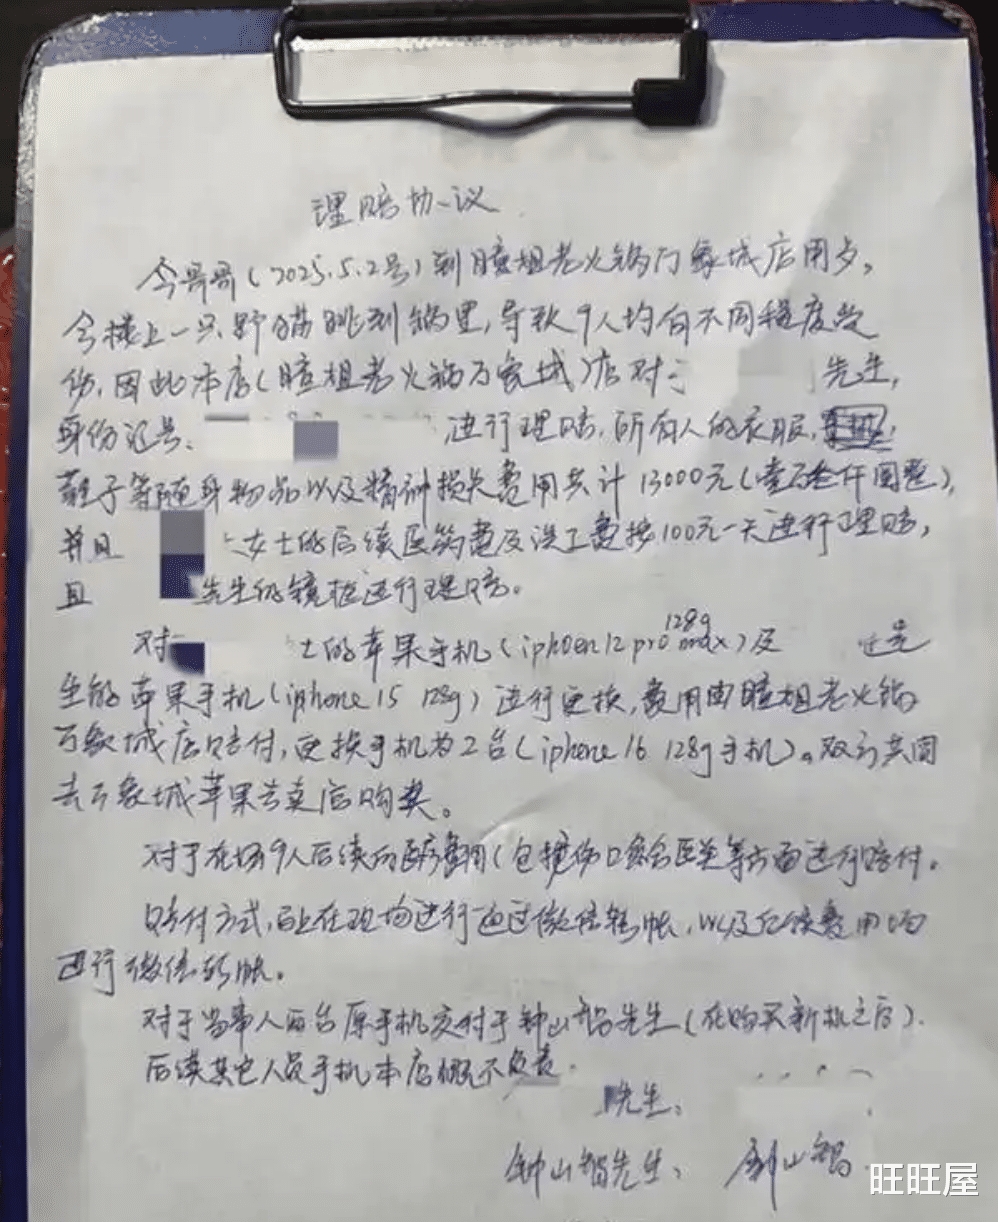 理赔协议
今 (2025.5.2号)到瞳姐老火锅万象城店用夕,
今楼上一只野猫跳到锅里,导致9人均有不同程度受
伤,因此本店(瞳姐老火锅万象城)店对于 先生,
身份证号: 进行理赔,所有人的衣服,
鞋子等随身物品以及精神损失费用共计13000元(壹万叁仟圆整),
并且 女士的后续医药费及误工费按100元一天进行理赔,
且 先生的镜框进行理赔。
对 士的苹果手机(iphoen12pro 128g max)及 先
生的苹果手机(iphone15 128g)进行更换,费用由瞳姐老火锅
万象城店赔付,更换手机为2台(iphone 16 128g手机)。双方共同
去万象城苹果专卖店购买。
对于在场9人后续的 (包括伤口 等方面进行赔付。
赔付方式,马上在现场进行通过微信转帐,以及后续费用均
进行微信转帐。
对于当事人两台原手机交付于钟山智先生(在购买新机之后).
后续其它人员手机本店概不负责.
先生:
钟山智先生: 钟山智
旺旺屋